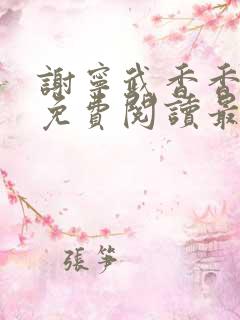 謝寧武香香
免費閱讀最
張笋